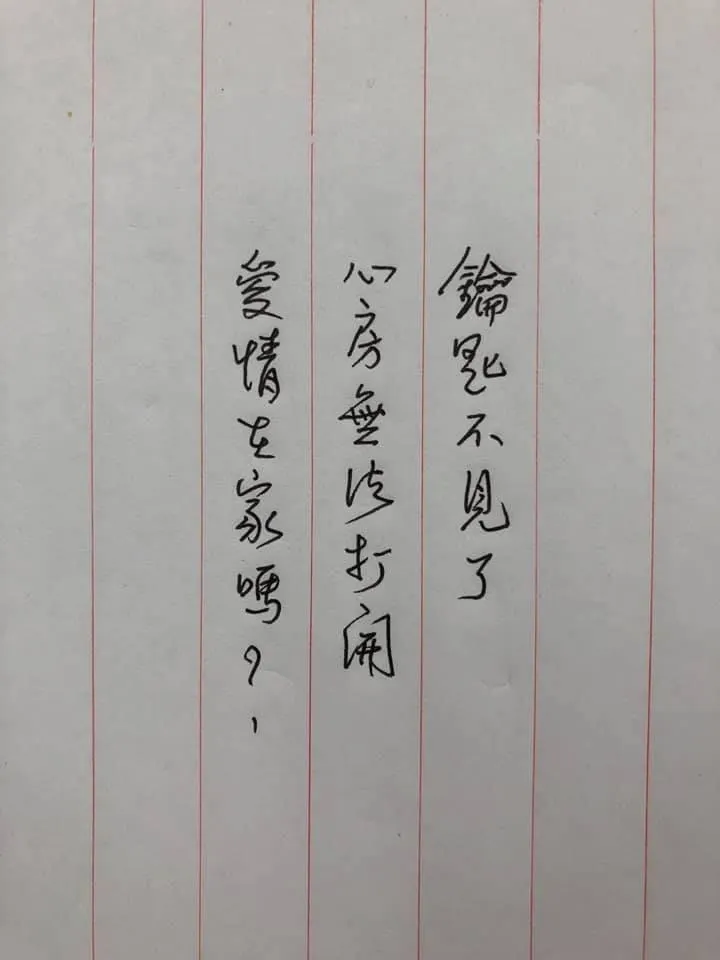 鑰匙不見了
心房無法打開
愛情在家嗎？